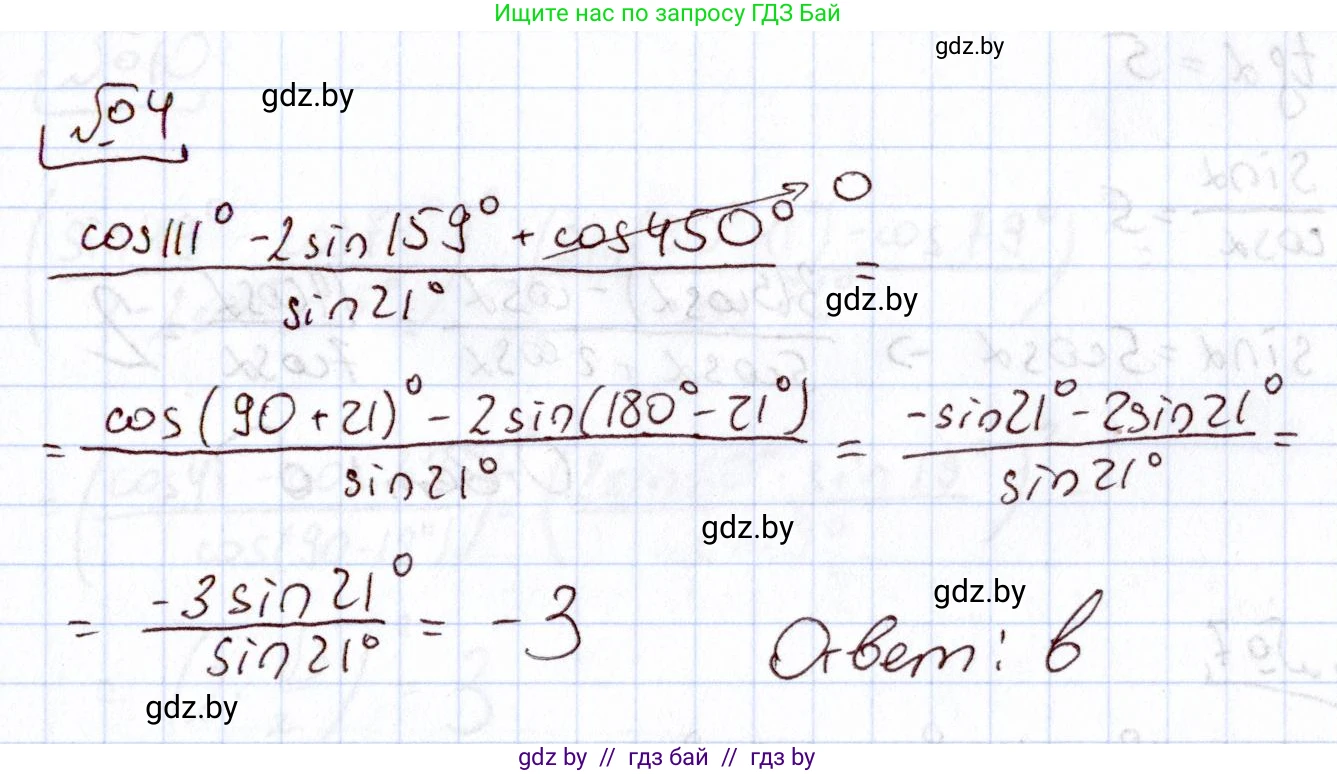 Ищите нас по запросу ГДЗ Бай
gdz.by
№4
gdz.by
(cos111° - 2sin159° + cos450°) / sin21° = 0
gdz.by
= (cos(90+21)° - 2sin(180° - 21°)) / sin21° = (-sin21° - 2sin21°) / sin21° =
gdz.by
= (-3sin21°) / sin21° = -3
gdz.by
Ответ: в
gdz.by
gdz.by // гдз бай // gdz.by